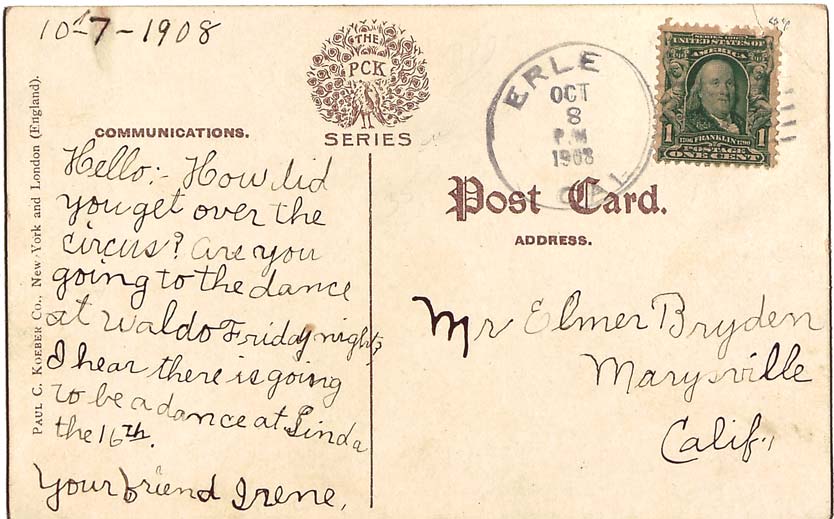 10-7-1908
THE
PCK
SERIES
ERLE
OCT
8
P.M
1908
CAL
SERIES 1902
UNITED STATES OF
AMERICA
1 1706 FRANKLIN 1790 1
POSTAGE
ONE CENT
COMMUNICATIONS.
Post Card.
ADDRESS.
Paul C. Koeber Co., New York and London (England).
Hello:- How did
you get over the
circus? are you
going to the dance
at Waldo Friday night?
I hear there is going
to be a dance at Linda
the 16th.
Your friend Irene.
Mr Elmer Bryden
Marysville
Calif.